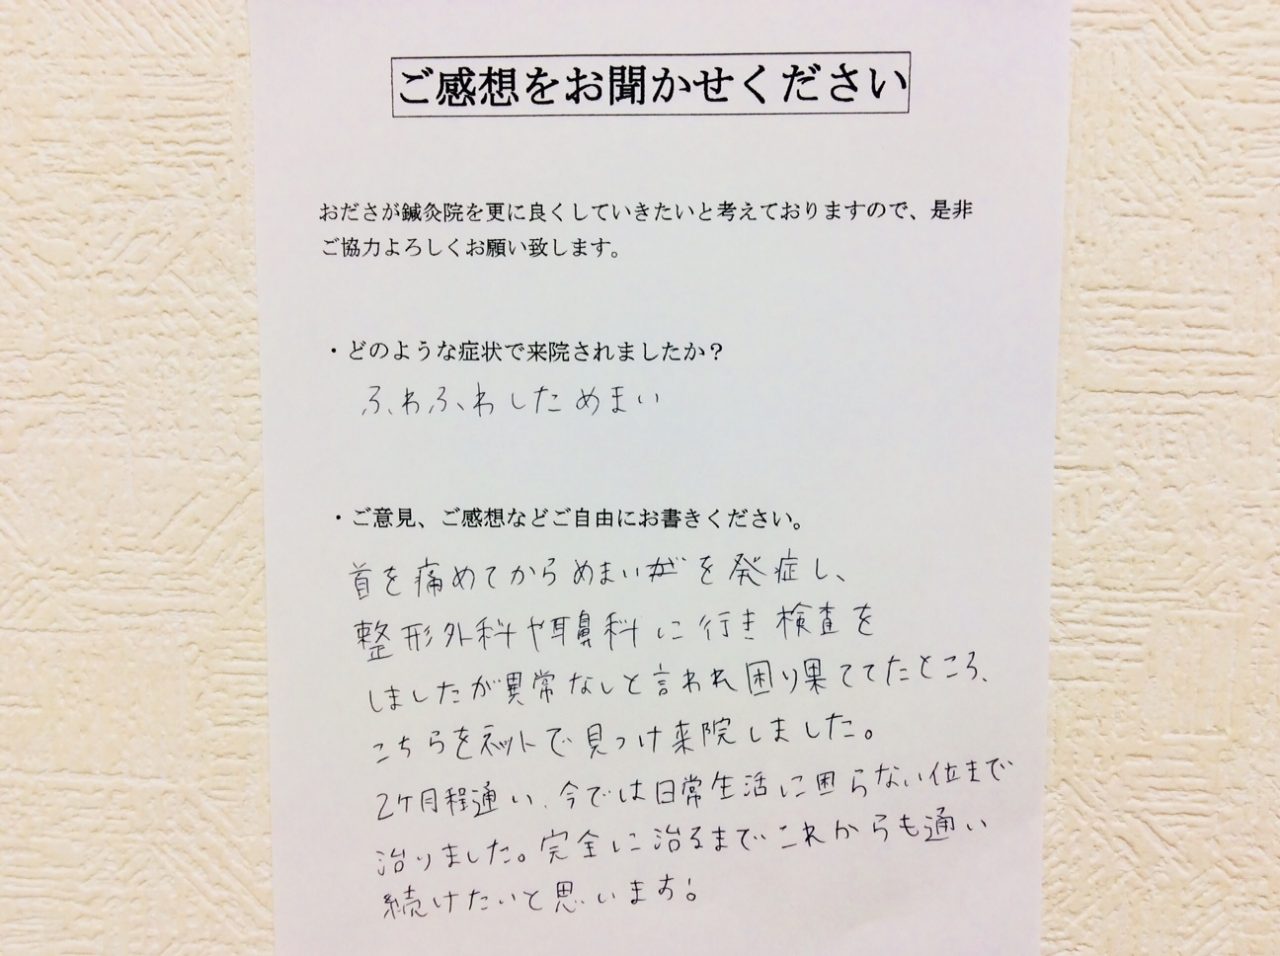 ご感想をお聞かせください
おださが鍼灸院を更に良くしていきたいと考えておりますので、是非
ご協力よろしくお願い致します。
・どのような症状で来院されましたか？
ふわふわしためまい
・ご意見、ご感想などご自由にお書きください。
首を痛めてからめまいを発症し、
整形外科や耳鼻科に行き検査を
しましたが異常なしと言われ困り果ててたところ、
こちらをネットで見つけ来院しました。
2ケ月程通い、今では日常生活に困らない位まで
治りました。完全に治るまでこれからも通い
続けたいと思います！